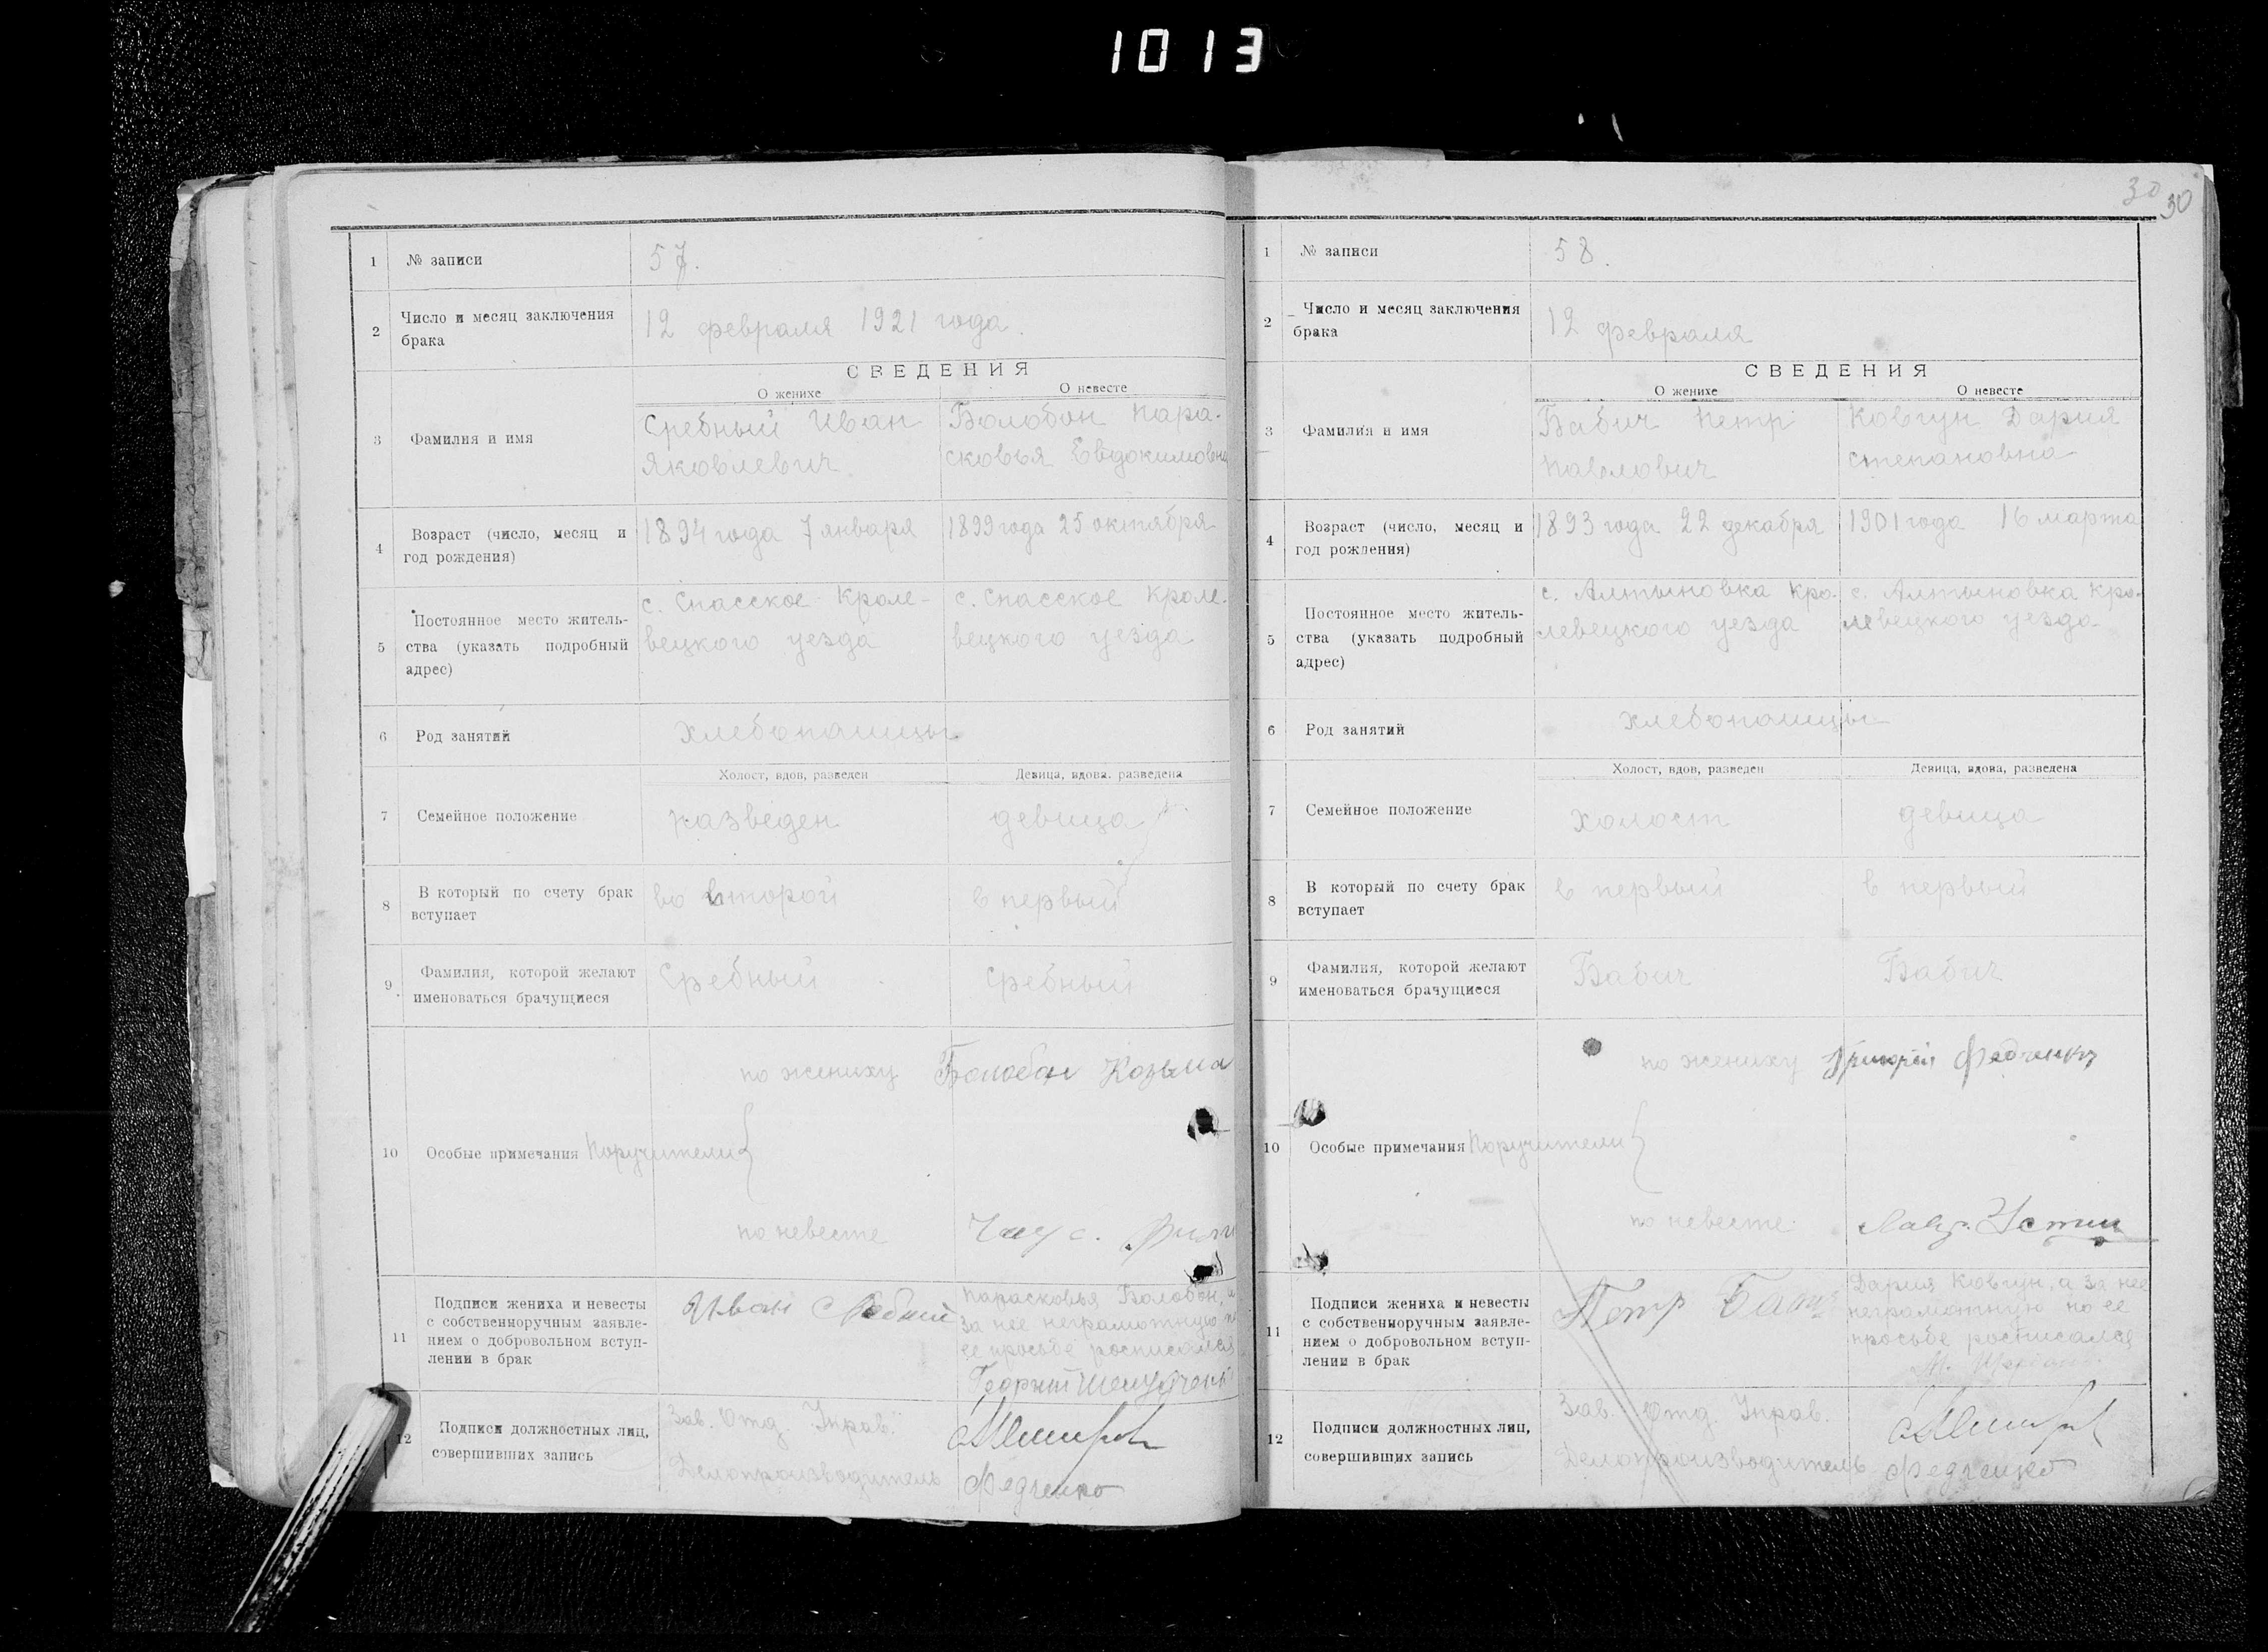 1013
1 № записи 57.
2 Число и месяц заключения
брака
12 февраля 1921 года.
СВЕДЕНИЯ
О женихе О невесте
3 Фамилия и имя
Сребный Иван
Яковлевич
Болобон Пара-
сковья Евдокимовна
4 Возраст (число, месяц и
год рождения)
1894 года 7 января
1899 года 25 октября
5 Постоянное место житель-
ства (указать подробный
адрес)
с. Спасское Кроле-
вецкого уезда
с. Спасское Кроле-
вецкого уезда
6 Род занятий хлебопашцы
Холост, вдов, разведен Девица, вдова, разведена
7 Семейное положение разведен девица
8 В который по счету брак
вступает
во второй в первый
9 Фамилия, которой желают
именоваться брачущиеся
Сребный Сребный
по жениху Болобан Козьма
10 Особые примечания Поручители
по невесте Чаус.
11 Подписи жениха и невесты
с собственноручным заявле-
нием о добровольном вступ-
лении в брак
Иван Сребный
Парасковья Болобон, а
за нее неграмотную по
ее просьбе росписался
Георгий
12 Подписи должностных лиц,
совершивших запись
Зав. Отд. Управ.
Делопроизводитель Федченко
30 30
1 № записи 58.
2 Число и месяц заключения
брака
12 февраля
СВЕДЕНИЯ
О женихе О невесте
3 Фамилия и имя
Бабич Петр
Павлович
Ковгун Дария
Степановна
4 Возраст (число, месяц и
год рождения)
1893 года 22 декабря
1901 года 16 марта
5 Постоянное место житель-
ства (указать подробный
адрес)
с. Алтыновка Кро-
левецкого уезда
с. Алтыновка Кро-
левецкого уезда
6 Род занятий хлебопашцы
Холост, вдов, разведен Девица, вдова, разведена
7 Семейное положение холост девица
8 В который по счету брак
вступает
в первый в первый
9 Фамилия, которой желают
именоваться брачущиеся
Бабич Бабич
по жениху Григорий Федченко
10 Особые примечания Поручители
по невесте Устин
11 Подписи жениха и невесты
с собственноручным заявле-
нием о добровольном вступ-
лении в брак
Петр Бабич
Дария Ковгун, а за нее
неграмотную по ее
просьбе росписался
12 Подписи должностных лиц,
совершивших запись
Зав. Отд. Управ.
Делопроизводитель Федченко